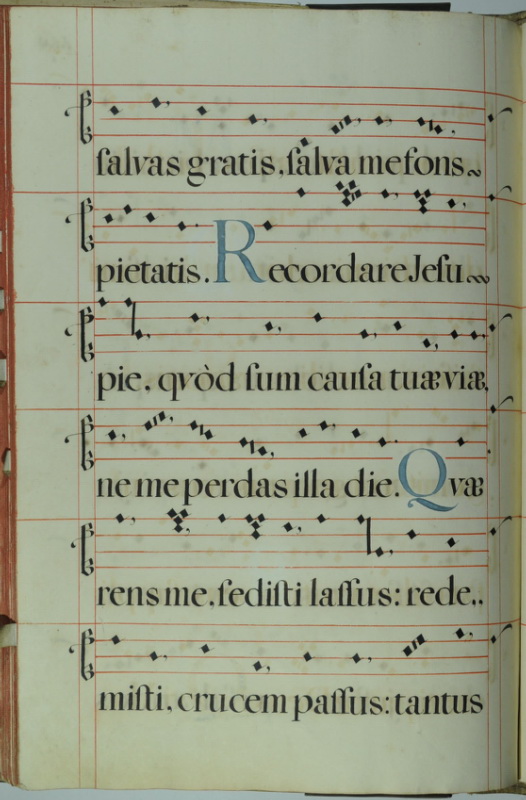 ſalvas gratis, ſalva me fons
pietatis. Recordare Jeſu
pie, qvòd ſum cauſa tuæ viæ,
ne me perdas illa die. Qvæ
rens me, ſediſti laſſus: rede,,
miſti, crucem paſſus: tantus